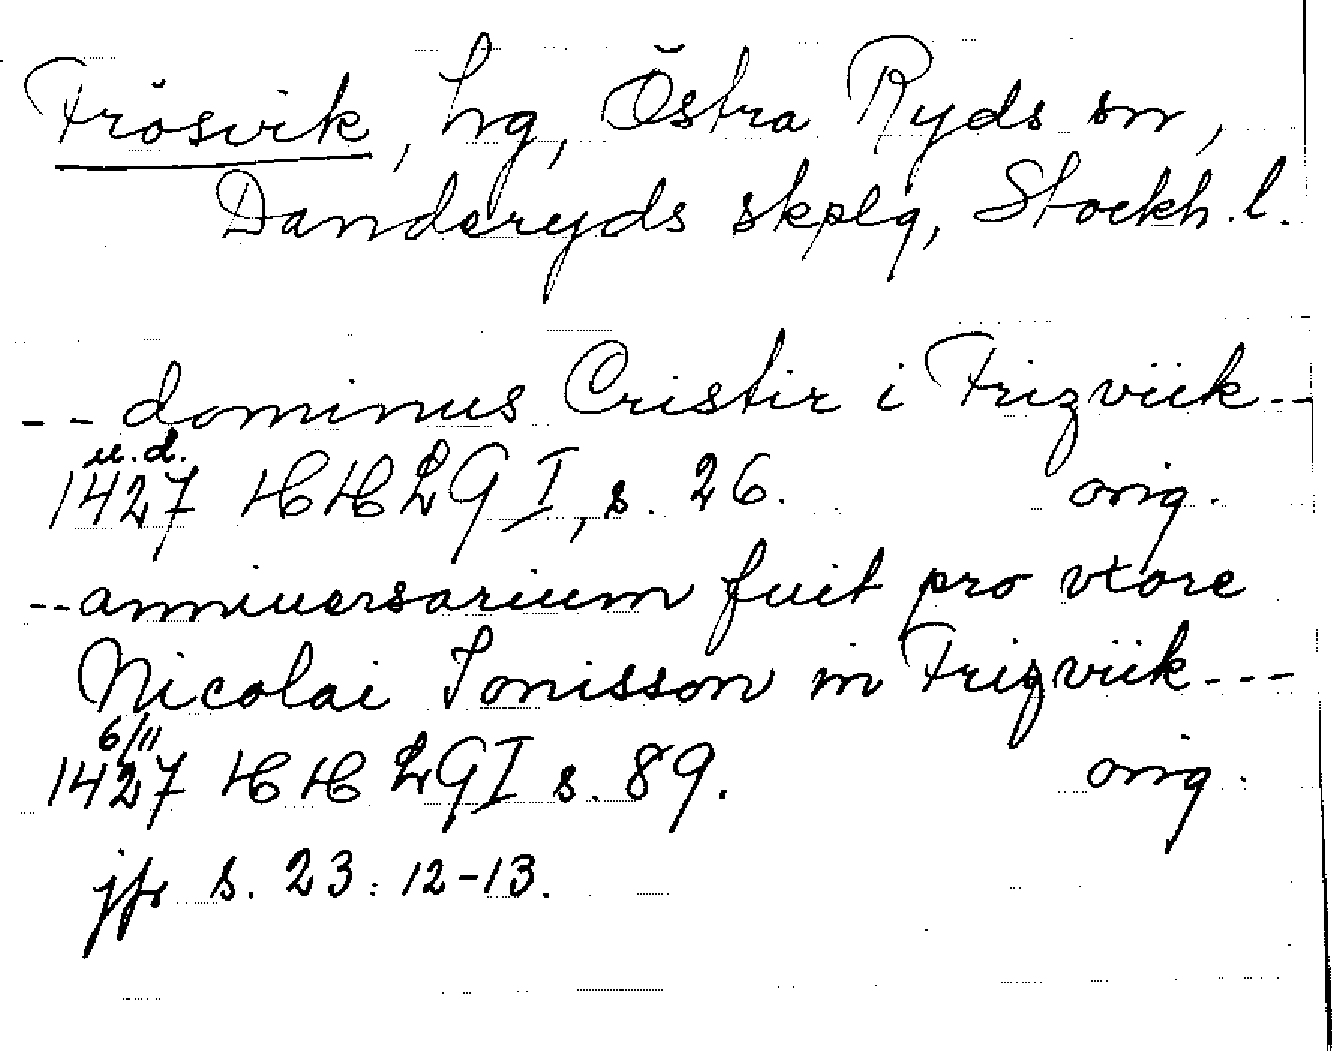 Frösvik, hg, Östra Ryds sn,
Danderyds skplg, Stockh. l.
-- dominus Cristir i Frizviik --
u.d.
1427 HH LG I, s. 26. orig.
-- anniuersarium fuit pro vxore
Nicolai Jonisson in Frizviik ---
6/11
1427 HH LG I s. 89. orig.
jfr s. 23: 12-13.